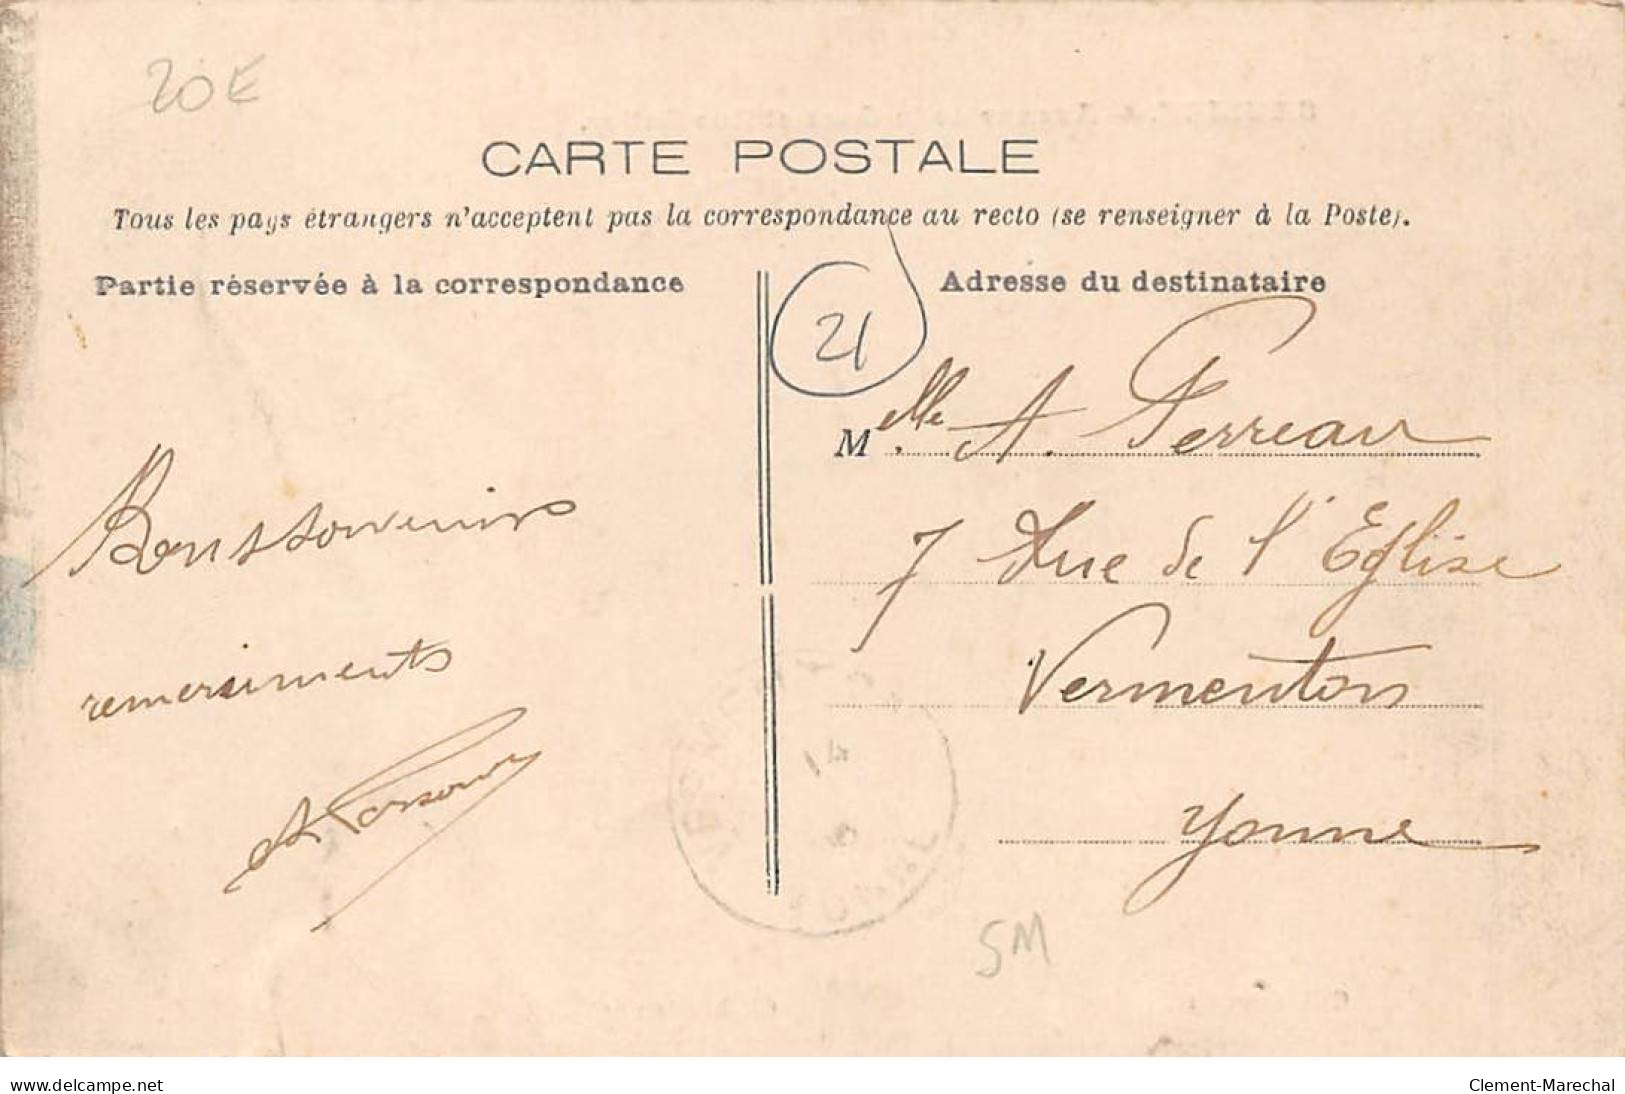 20 €
CARTE POSTALE
Tous les pays étrangers n'acceptent pas la correspondance au recto (se renseigner à la Poste).
Partie réservée à la correspondance
Adresse du destinataire
21
Melle A. Perreau
7 Rue de l'Eglise
Vermenton
Yonne
Bons souvenirs
remerciements
5M
www.delcampe.net
Clement-Marechal